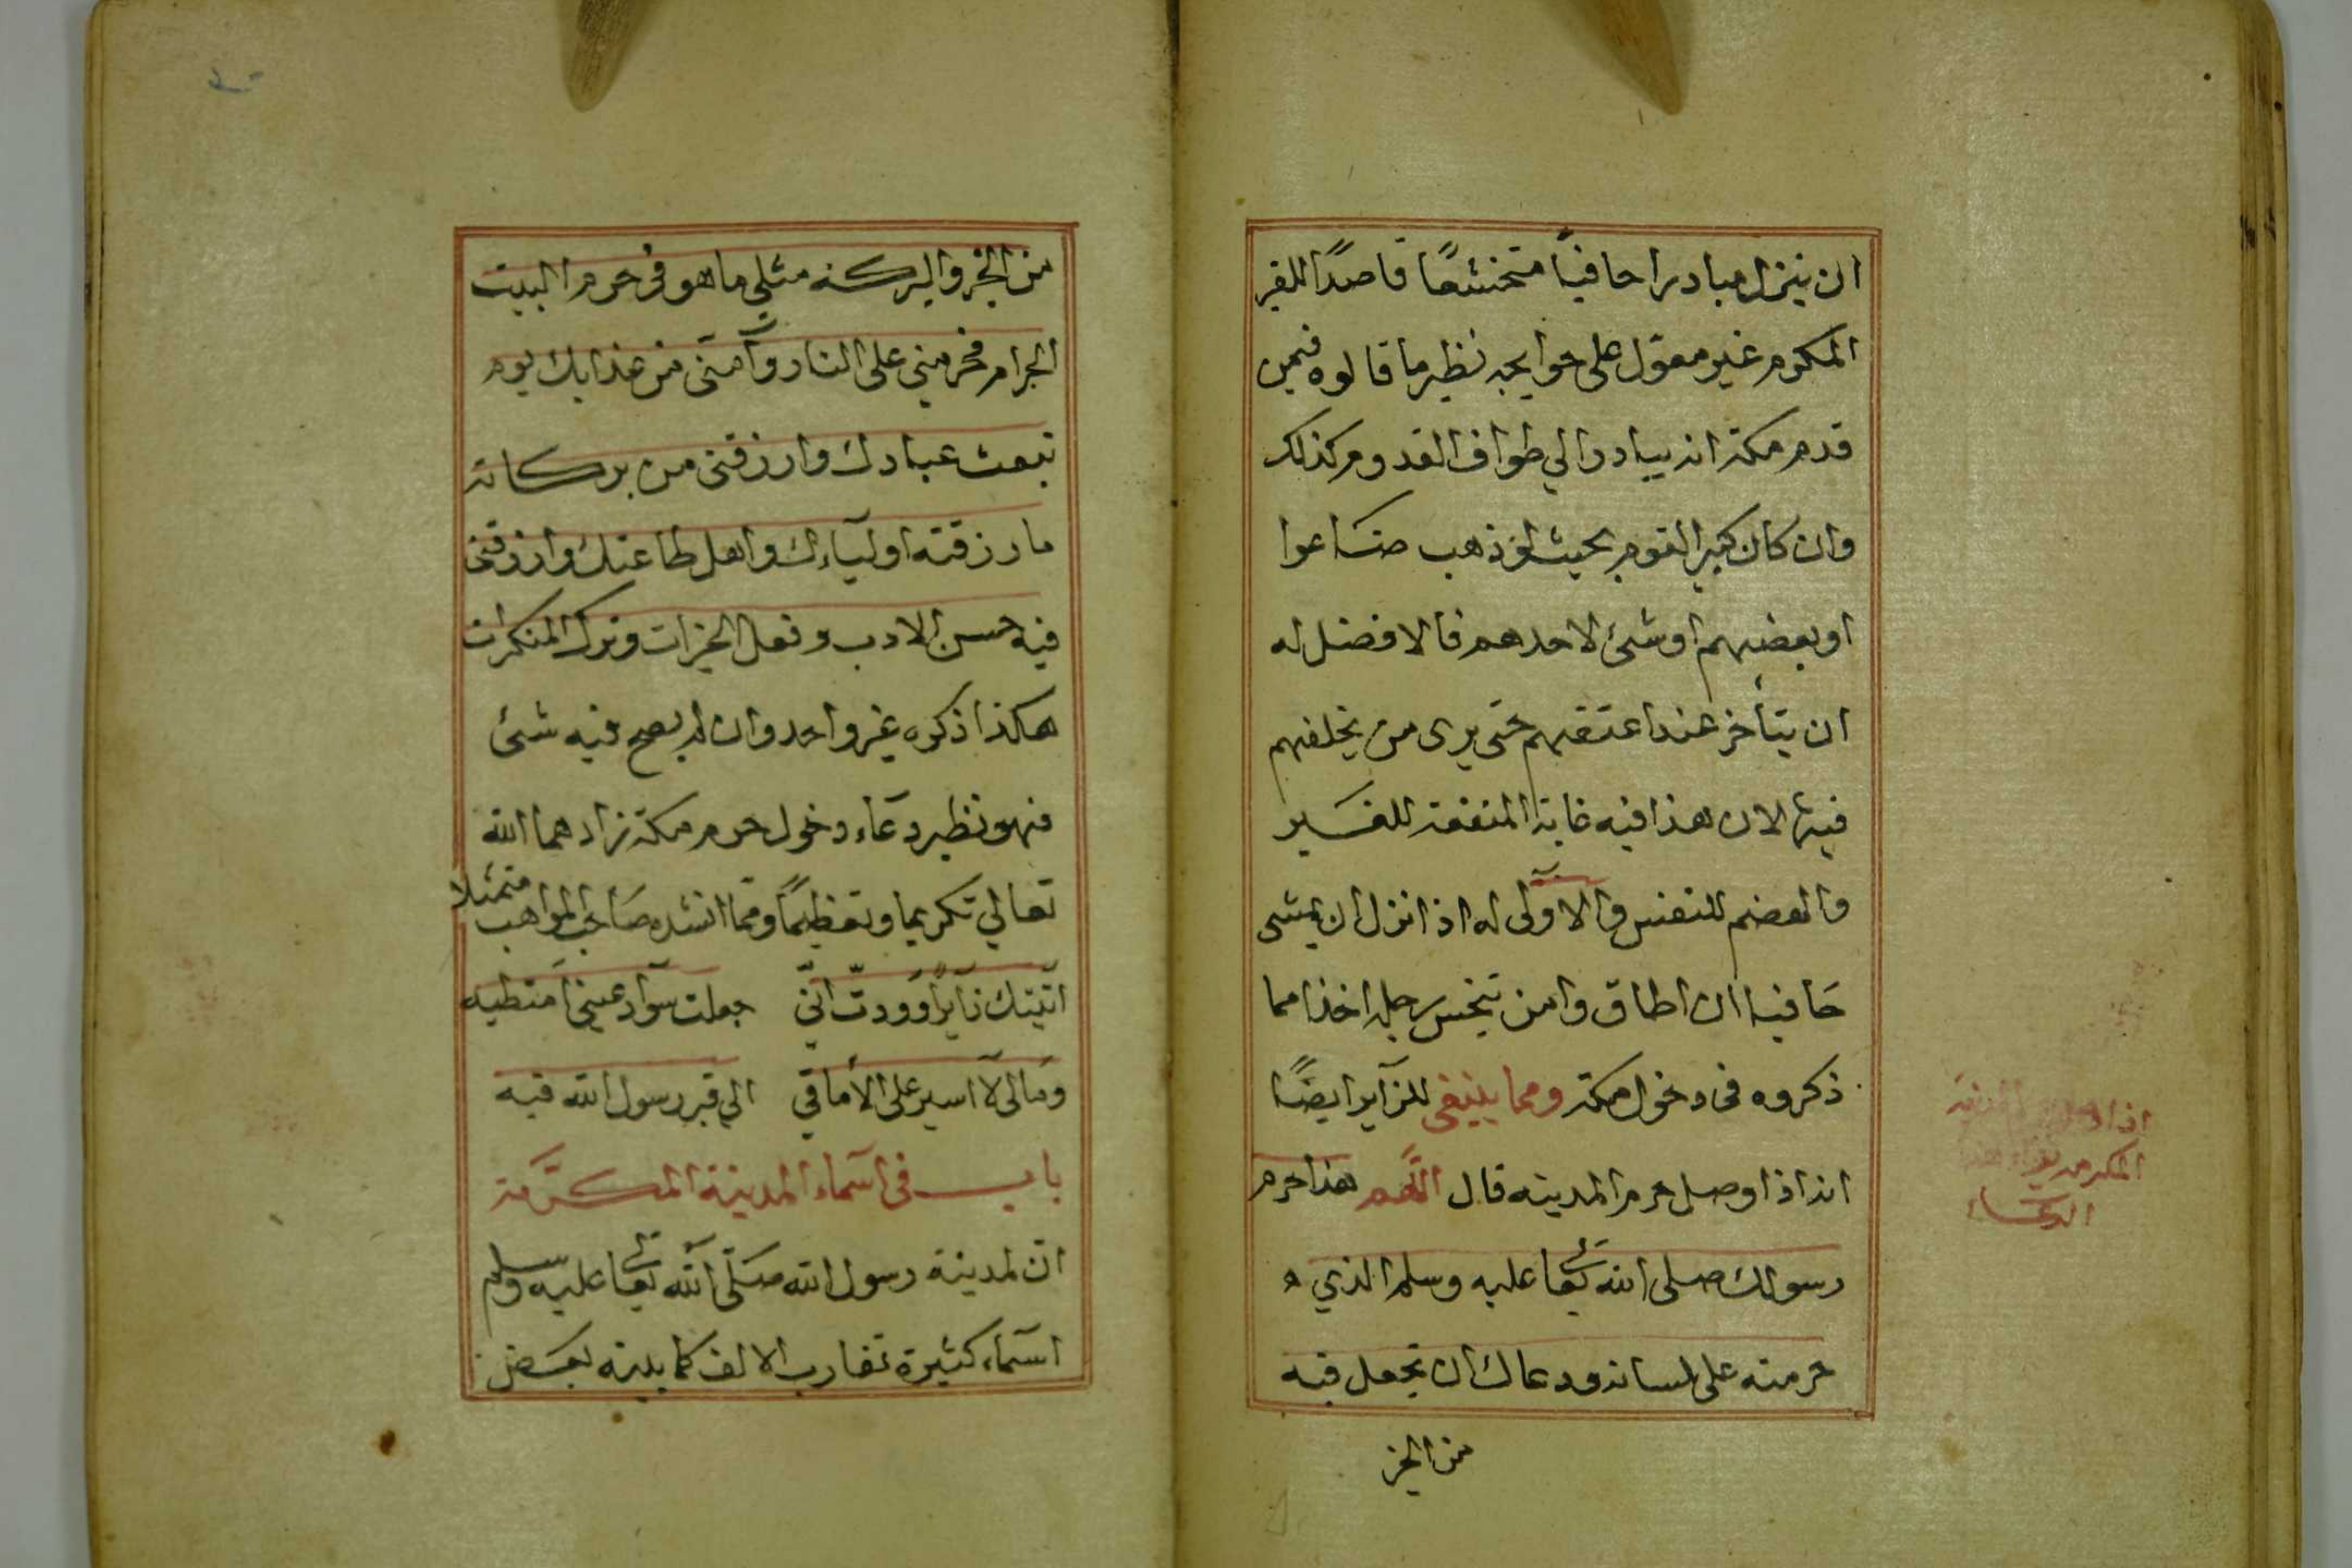 ان ينزل مبادرا حافيًا متخشعًا قاصدًا للقبر
المكرم غير معوّل على حوايجه نظير ما قالوه فيمن
قدم مكة انه يبادر الي طواف القدوم كذلك
وان كان كبير القوم بحيث لو ذهب ضاعوا
او بعضهم او شئ لاحدهم فالافضل له
ان يتأخر عند امتعتهم حتى يرى من يخلفهم
فيها لان هذا فيه غاية المنفعة للغير
والهضم للنفس والاولى له اذا نزل ان يمشى
حافيا ان اطاق وامن تنجس رجله اخذا مما
ذكروه فى دخول مكة ومما ينبغى للزآير ايضًا
انه اذا وصل حرم المدينه قال اللّهم هذا حرم
رسولك صلى الله تعا عليه وسلم الذي
حرمته على لسانه ودعاك ان تجعل فيه
من الخير
اذا
المكرمة
الدعاء
من الخير والبركة مثلي ما هو فى حرم البيت
الحرام فحرمني على النار وآمنّى من عذابك يوم
تبعث عبادك وارزقنى من بركاته
ما رزقته اوليآءك واهل طاعتك وارزقنى
فيه حسن الادب وفعل الخيرات وترك المنكرات
هكذا ذكره غير واحد وان لم يصح فيه شئ
فهو نظير دعآء دخول حرم مكة زادهما الله
تعالي تكريما وتعظيمًا ومما انشده صاحب المواهب متمثلا
اتيتك زآيرًا ووددتّ انّى جعلت سوآد عينى امتطيه
ومالى لآ اسير على الأماقي الي قبر رسول الله فيه
باب فى اسمآء المدينة المكرّمة
انّ لمدينة رسول الله صلّى الله تعا عليه وسلم
اسمآء كثيرة تقارب الالف كما بينه بعض